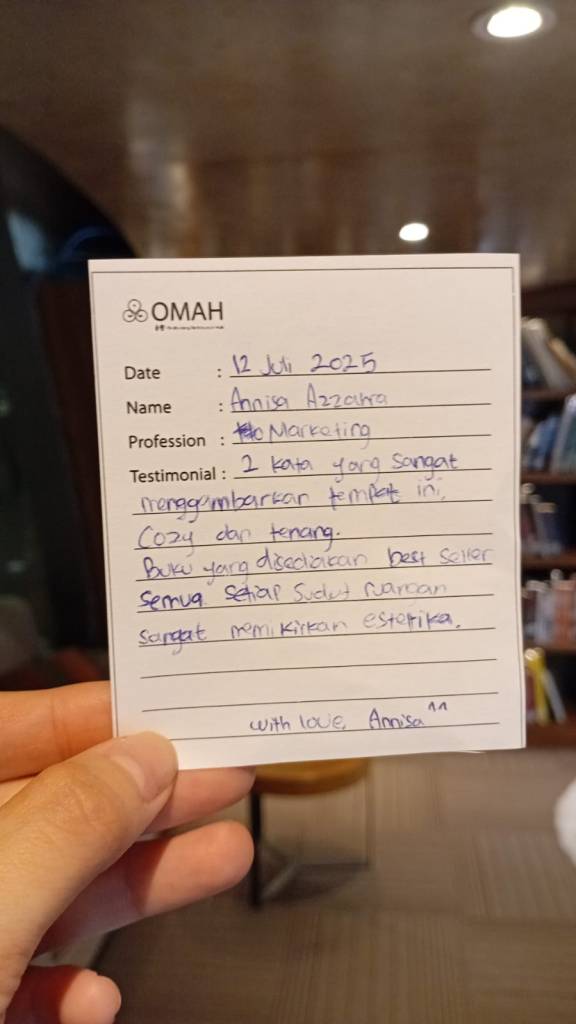 OMAH
Date : 12 Juli 2025
Name : Annisa Azzahra
Profession : Marketing
Testimonial : 2 kata yang sangat
menggambarkan tempat ini,
Cozy dan tenang.
Buku yang disediakan best seller
semua. setiap sudut ruangan
sangat memikirkan estetika.
with love, Annisa ^^